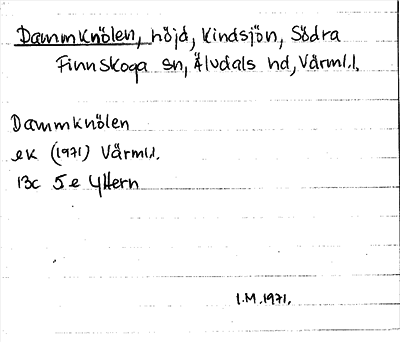 Dammknölen, höjd, Kindsjön, Södra
Finnskoga sn, Älvdals hd, Värml.l.
Dammknölen
ek (1971) Värml.l.
13c 5e Yttern
I.M.1971.